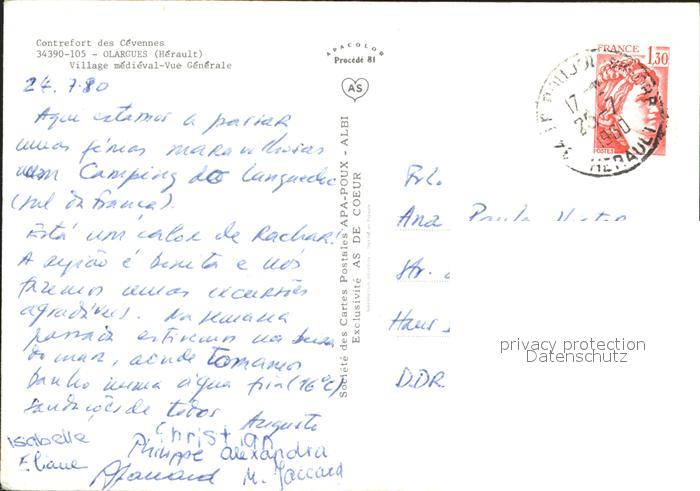 Contrefort des Cévennes
34390-105 - OLARGUES (Hérault)
Village médiéval-Vue Générale
24.7.80
Aqui estamos a passar
umas férias maravilhosas
num Camping do Languedoc
(sul da França).
Está um calor de rachar!
A região é bonita e nós
fazemos umas excursões
agradáveis. Na semana
passada estivemos na beira
do mar, aonde tomamos
banho numa água fria (16°C)
Saudações de todos
Augusto
Isabelle
Christian
Eliane
Philippe Alexandra
M. Jaccard
APACOLOR
Procédé 81
AS
Société des Cartes Postales APA-POUX - ALBI
Exclusivité AS DE COEUR
FRANCE
1,30
POSTES
17
25-7
1980
34
HERAULT
Frl.
Ana Paula
Str.
Haus
DDR
privacy protection
Datenschutz